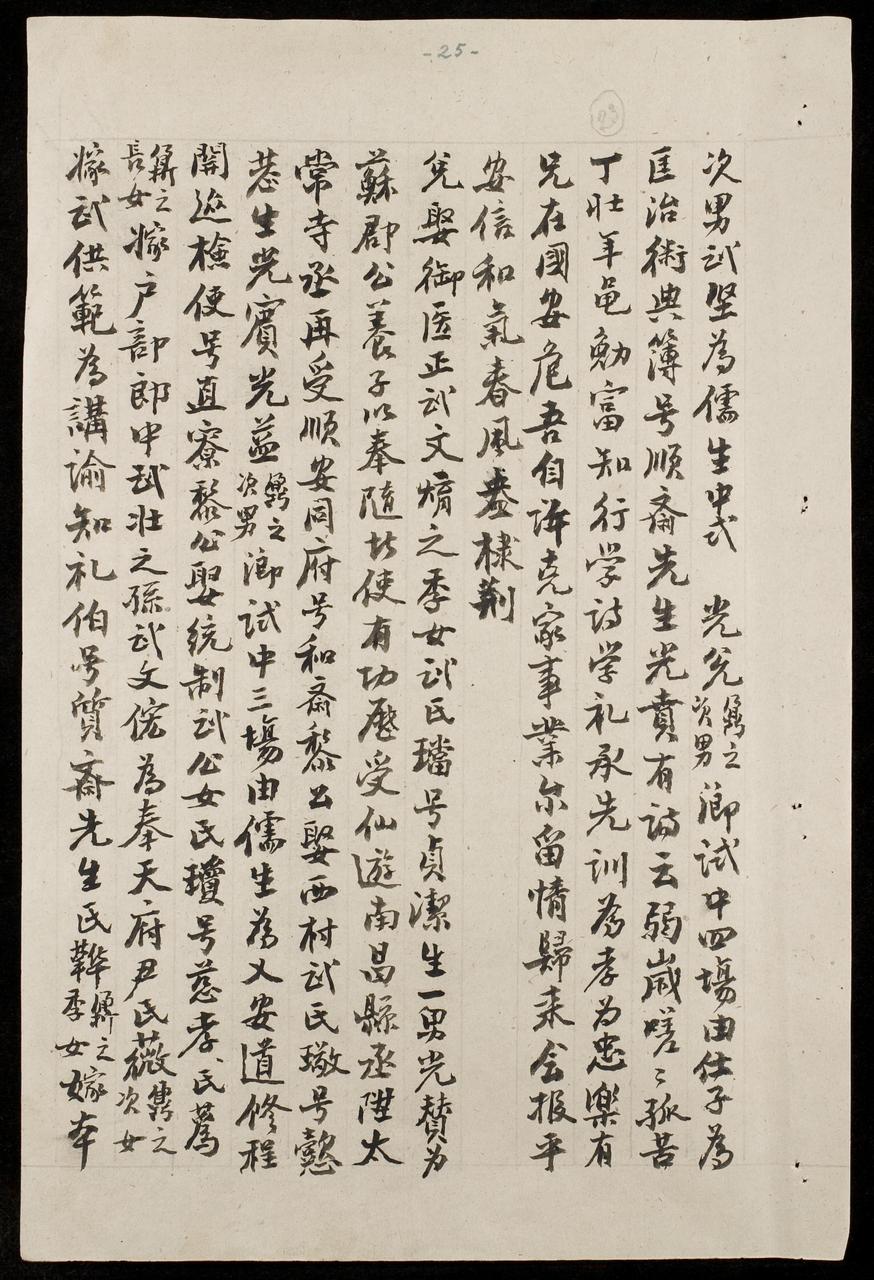 -25-
23
次男武堅為儒生中式 光兊鐫之次男鄉試中四場由仕子為
匡治術典簿号順齋先生光賁有詩云弱歲嗟〻孤苦
丁壯年黽勉富知行学詩学礼承先訓為孝为忠樂有
兄在國安危吾自許克家事業尔留情歸来会报平
安信和氣春風藹棣荆
兊娶御医正武文㷙之季女武氏璫号貞潔生一男光賛为
蘇郡公養子以奉隨北使有功歷受仙遊南昌縣丞陞太
常寺丞再受順安同府号和齋黎公娶西村武氏璥号懿
慈生光賓光益鐫之次男鄉試中三場由儒生為乂安道修程
開廵檢使号直寮黎公娶統制武公女氏瓊号慈孝、氏蔿
鼐之長女嫁户部郎中武壮之孫武文倥為奉天府尹氏薇鐫之次女
嫁武供範為講諭知礼伯号質齋先生氏鞾鼐之季女嫁本